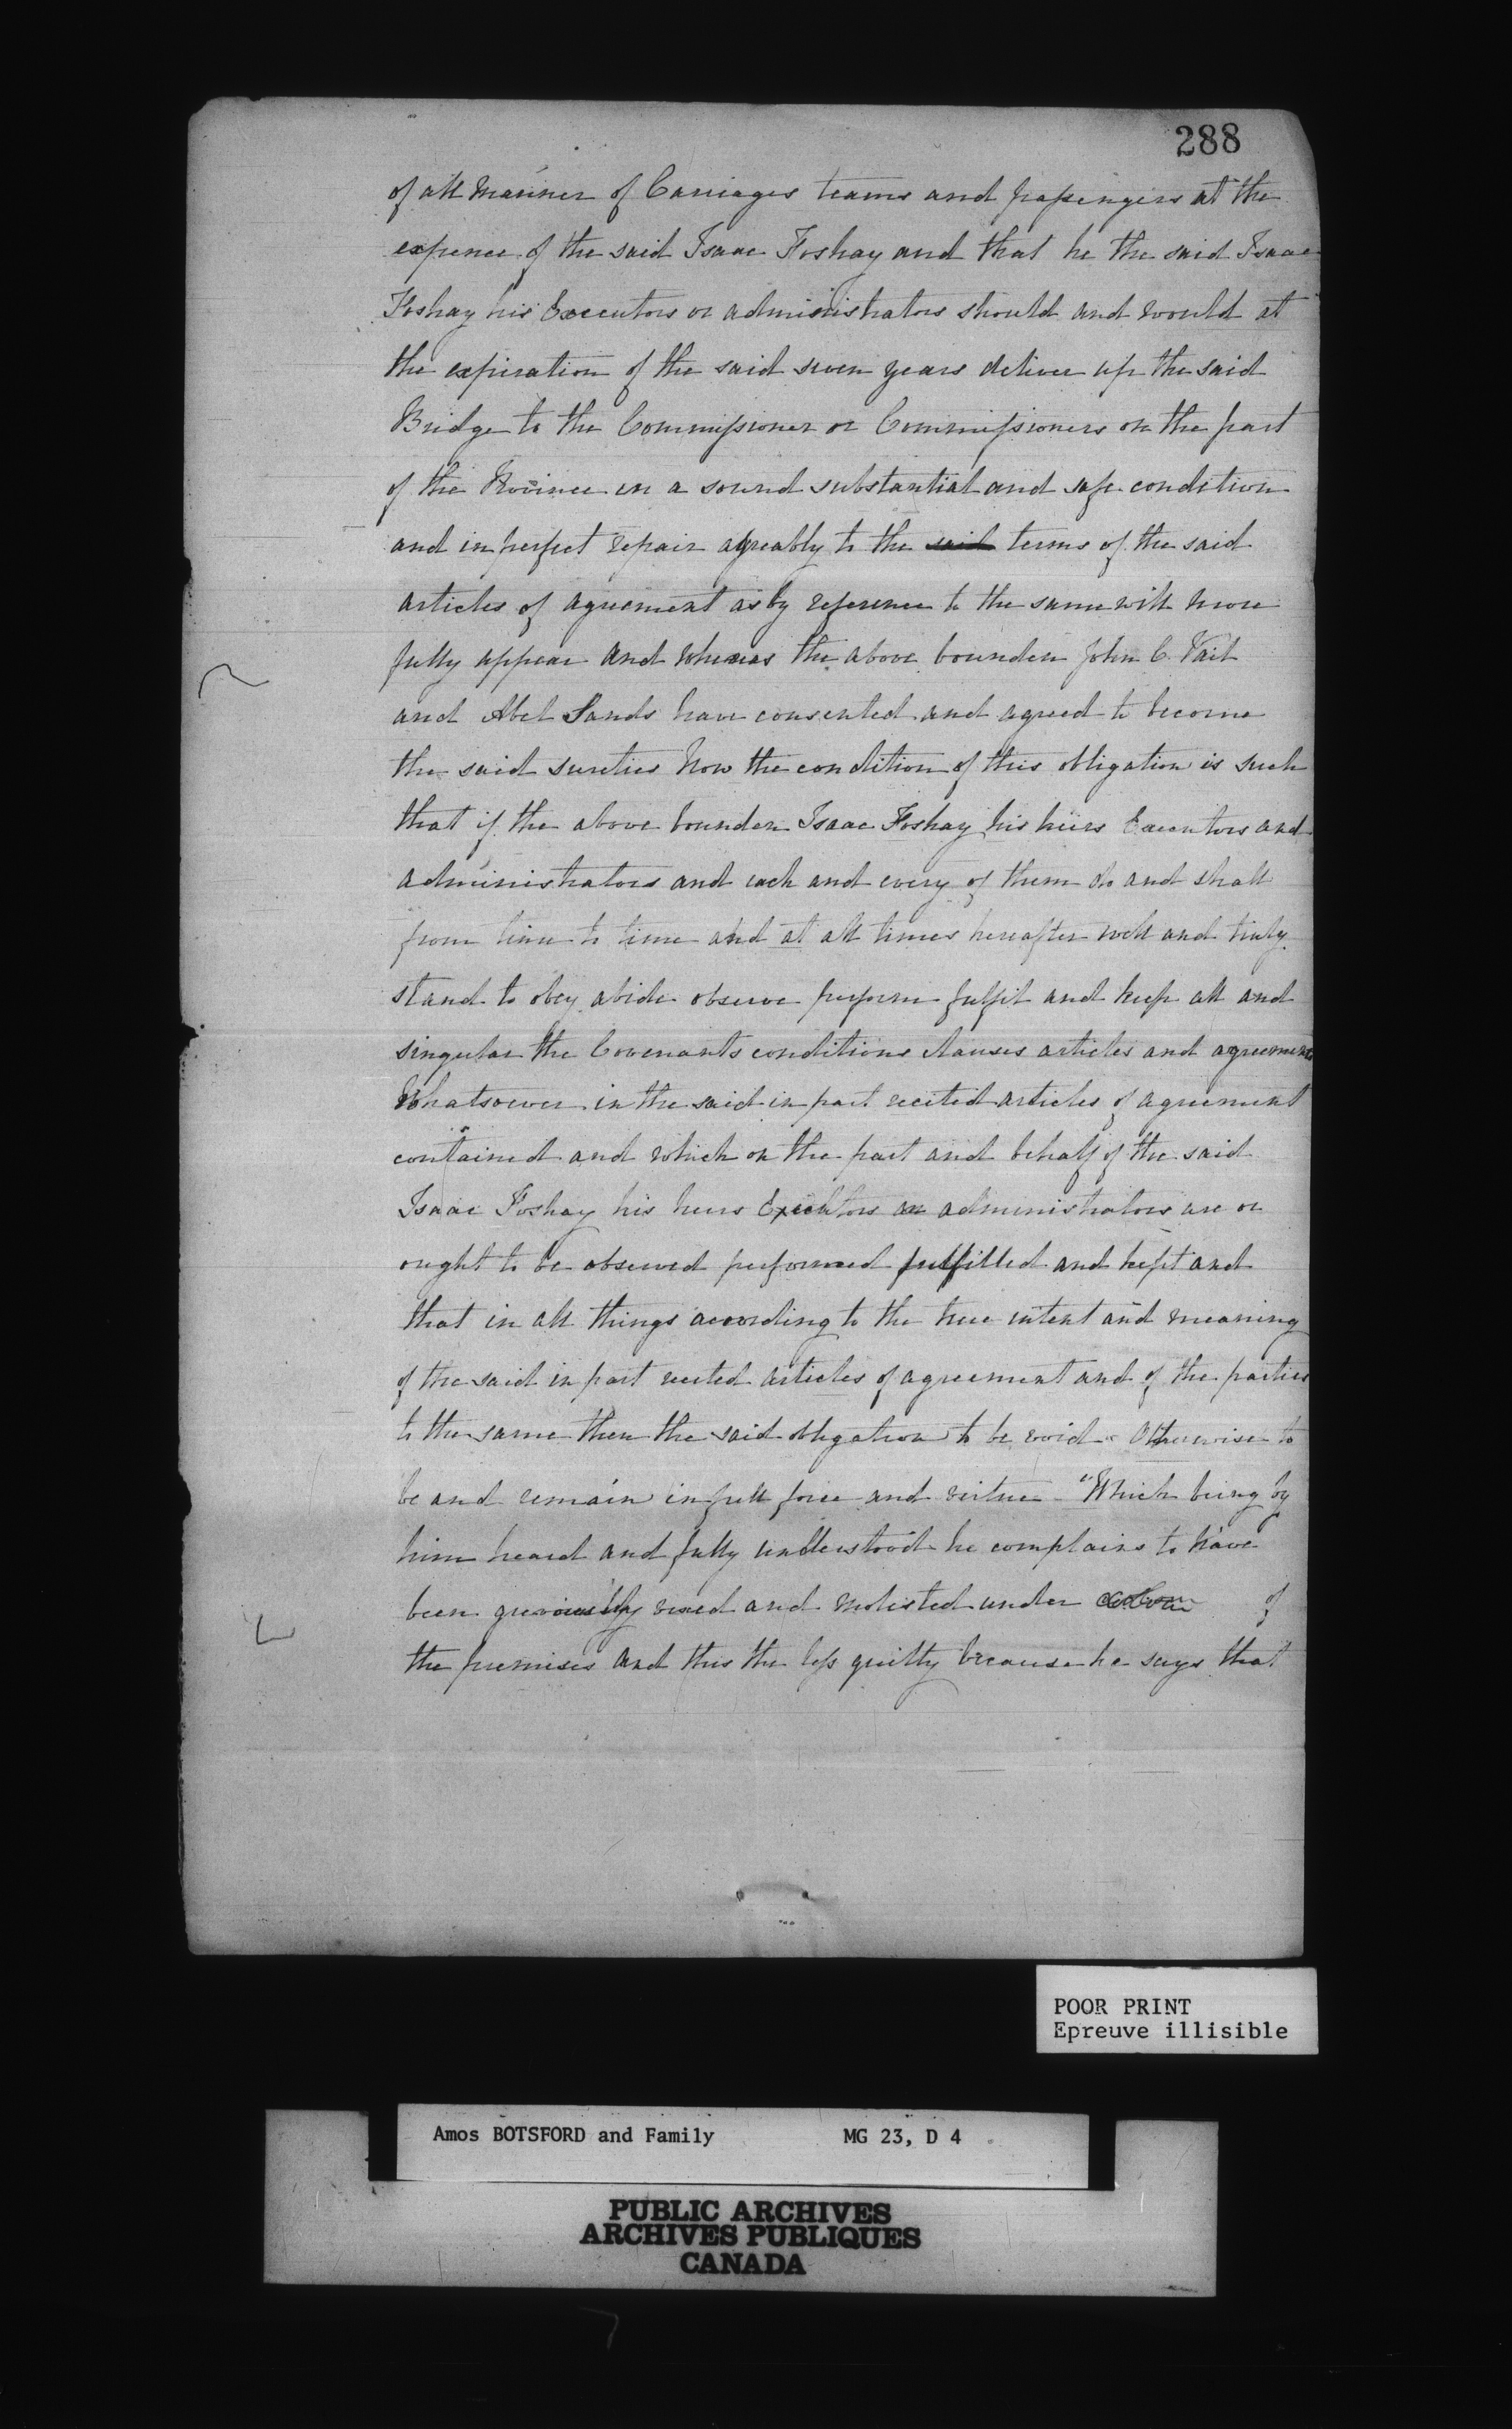 288
of all manner of Carriages teams and passengers at the
expence of the said Isaac Foshay and that he the said Isaac
Foshay his Executors or administrators should and would at
the expiration of the said seven years deliver up the said
Bridge to the Commissioner or Commissioners on the part
of the Province in a sound substantial and safe condition
and in perfect repair agreably to the said terms of the said
articles of agreement as by reference to the same will more
fully appear and whereas the above bounden John C. Vail
and Abel Sands have consented and agreed to become
the said sureties Now the condition of this obligation is such
that if the above bounden Isaac Foshay his heirs Executors and
administrators and each and every of them do and shall
from time to time and at all times hereafter well and truly
stand to obey abide observe perform fulfil and keep all and
singular the Covenants conditions clauses articles and agreements
Whatsoever in the said in part recited articles of agreement
contained and which on the part and behalf of the said
Isaac Foshay his heirs Executors or administrators are or
ought to be observed performed fulfilled and kept and
that in all things according to the true intent and meaning
of the said in part recited articles of agreement and of the parties
to the same then the said obligation to be void otherwise to
be and remain in full force and virtue - "Which being by
him heard and fully understood he complains to have
been grieviously vexed and molested under of
the premises and this the less guilty because he says that
POOR PRINT
Epreuve illisible
Amos BOTSFORD and Family MG 23, D 4
PUBLIC ARCHIVES
ARCHIVES PUBLIQUES
CANADA